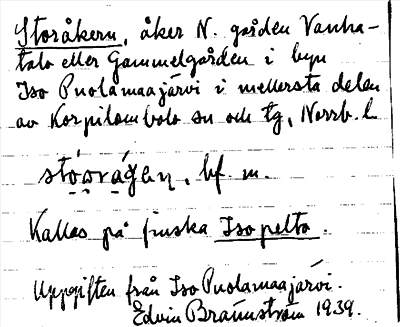 Storåkern, åker N. gården Vanha-
talo eller Gammelgården i byn
Iso Puolamaajärvi i mellersta delen
av Korpilombolo sn och tg, Norrb. l.
bf m.
Kallas på finska Isopelto.
Uppgiften från Iso Puolamaajärvi.
Edvin Brännström 1939.